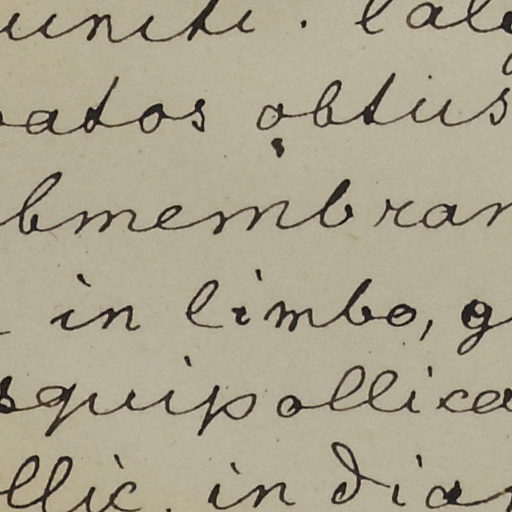 uniti. Caly
batos obtus
bmembran
in limbo, g
squipollica
llic. in dia